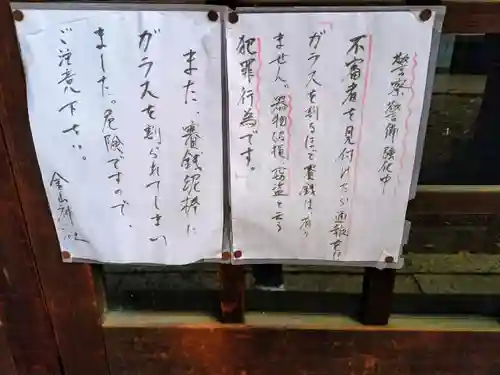 警察警備強化中
不審者を見付けたら通報を!!
「ガラスを割るほど賽銭は、有り
ません。器物破損・窃盗と云う
犯罪行為です。」
また、賽銭泥棒に
ガラスを割られてしまい
ました。危険ですので、
ご注意下さい。
金山神社